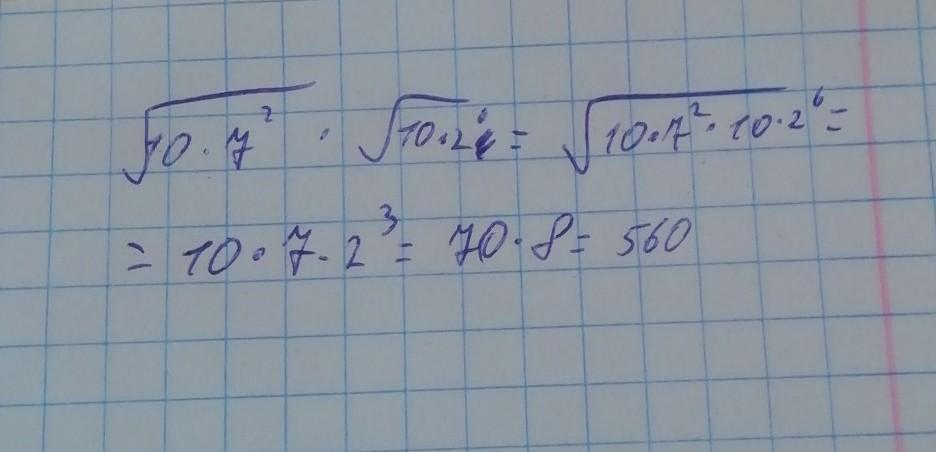 √10·7² · √10·2⁶ = √10·7²·10·2⁶ =
= 10·7·2³ = 70·8 = 560